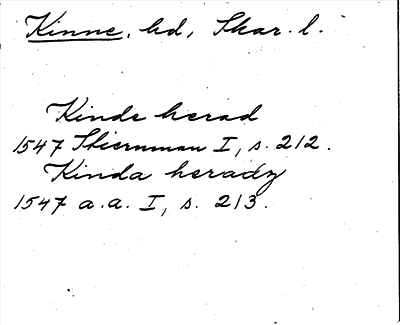 Kinne, hd, Skar. l.
Kinde herad
1547 Stiernman I, s. 212.
Kinda heradz
1547 a.a. I, s. 213.